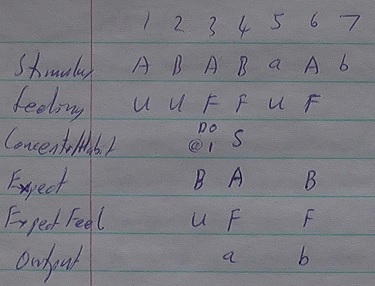 1 2 3 4 5 6 7
Stimulus A B A B a A b
feeling U U F F U F
Concentr/Habit DO @1 S
Expect B A B
Expect Feel U F F
Output a b